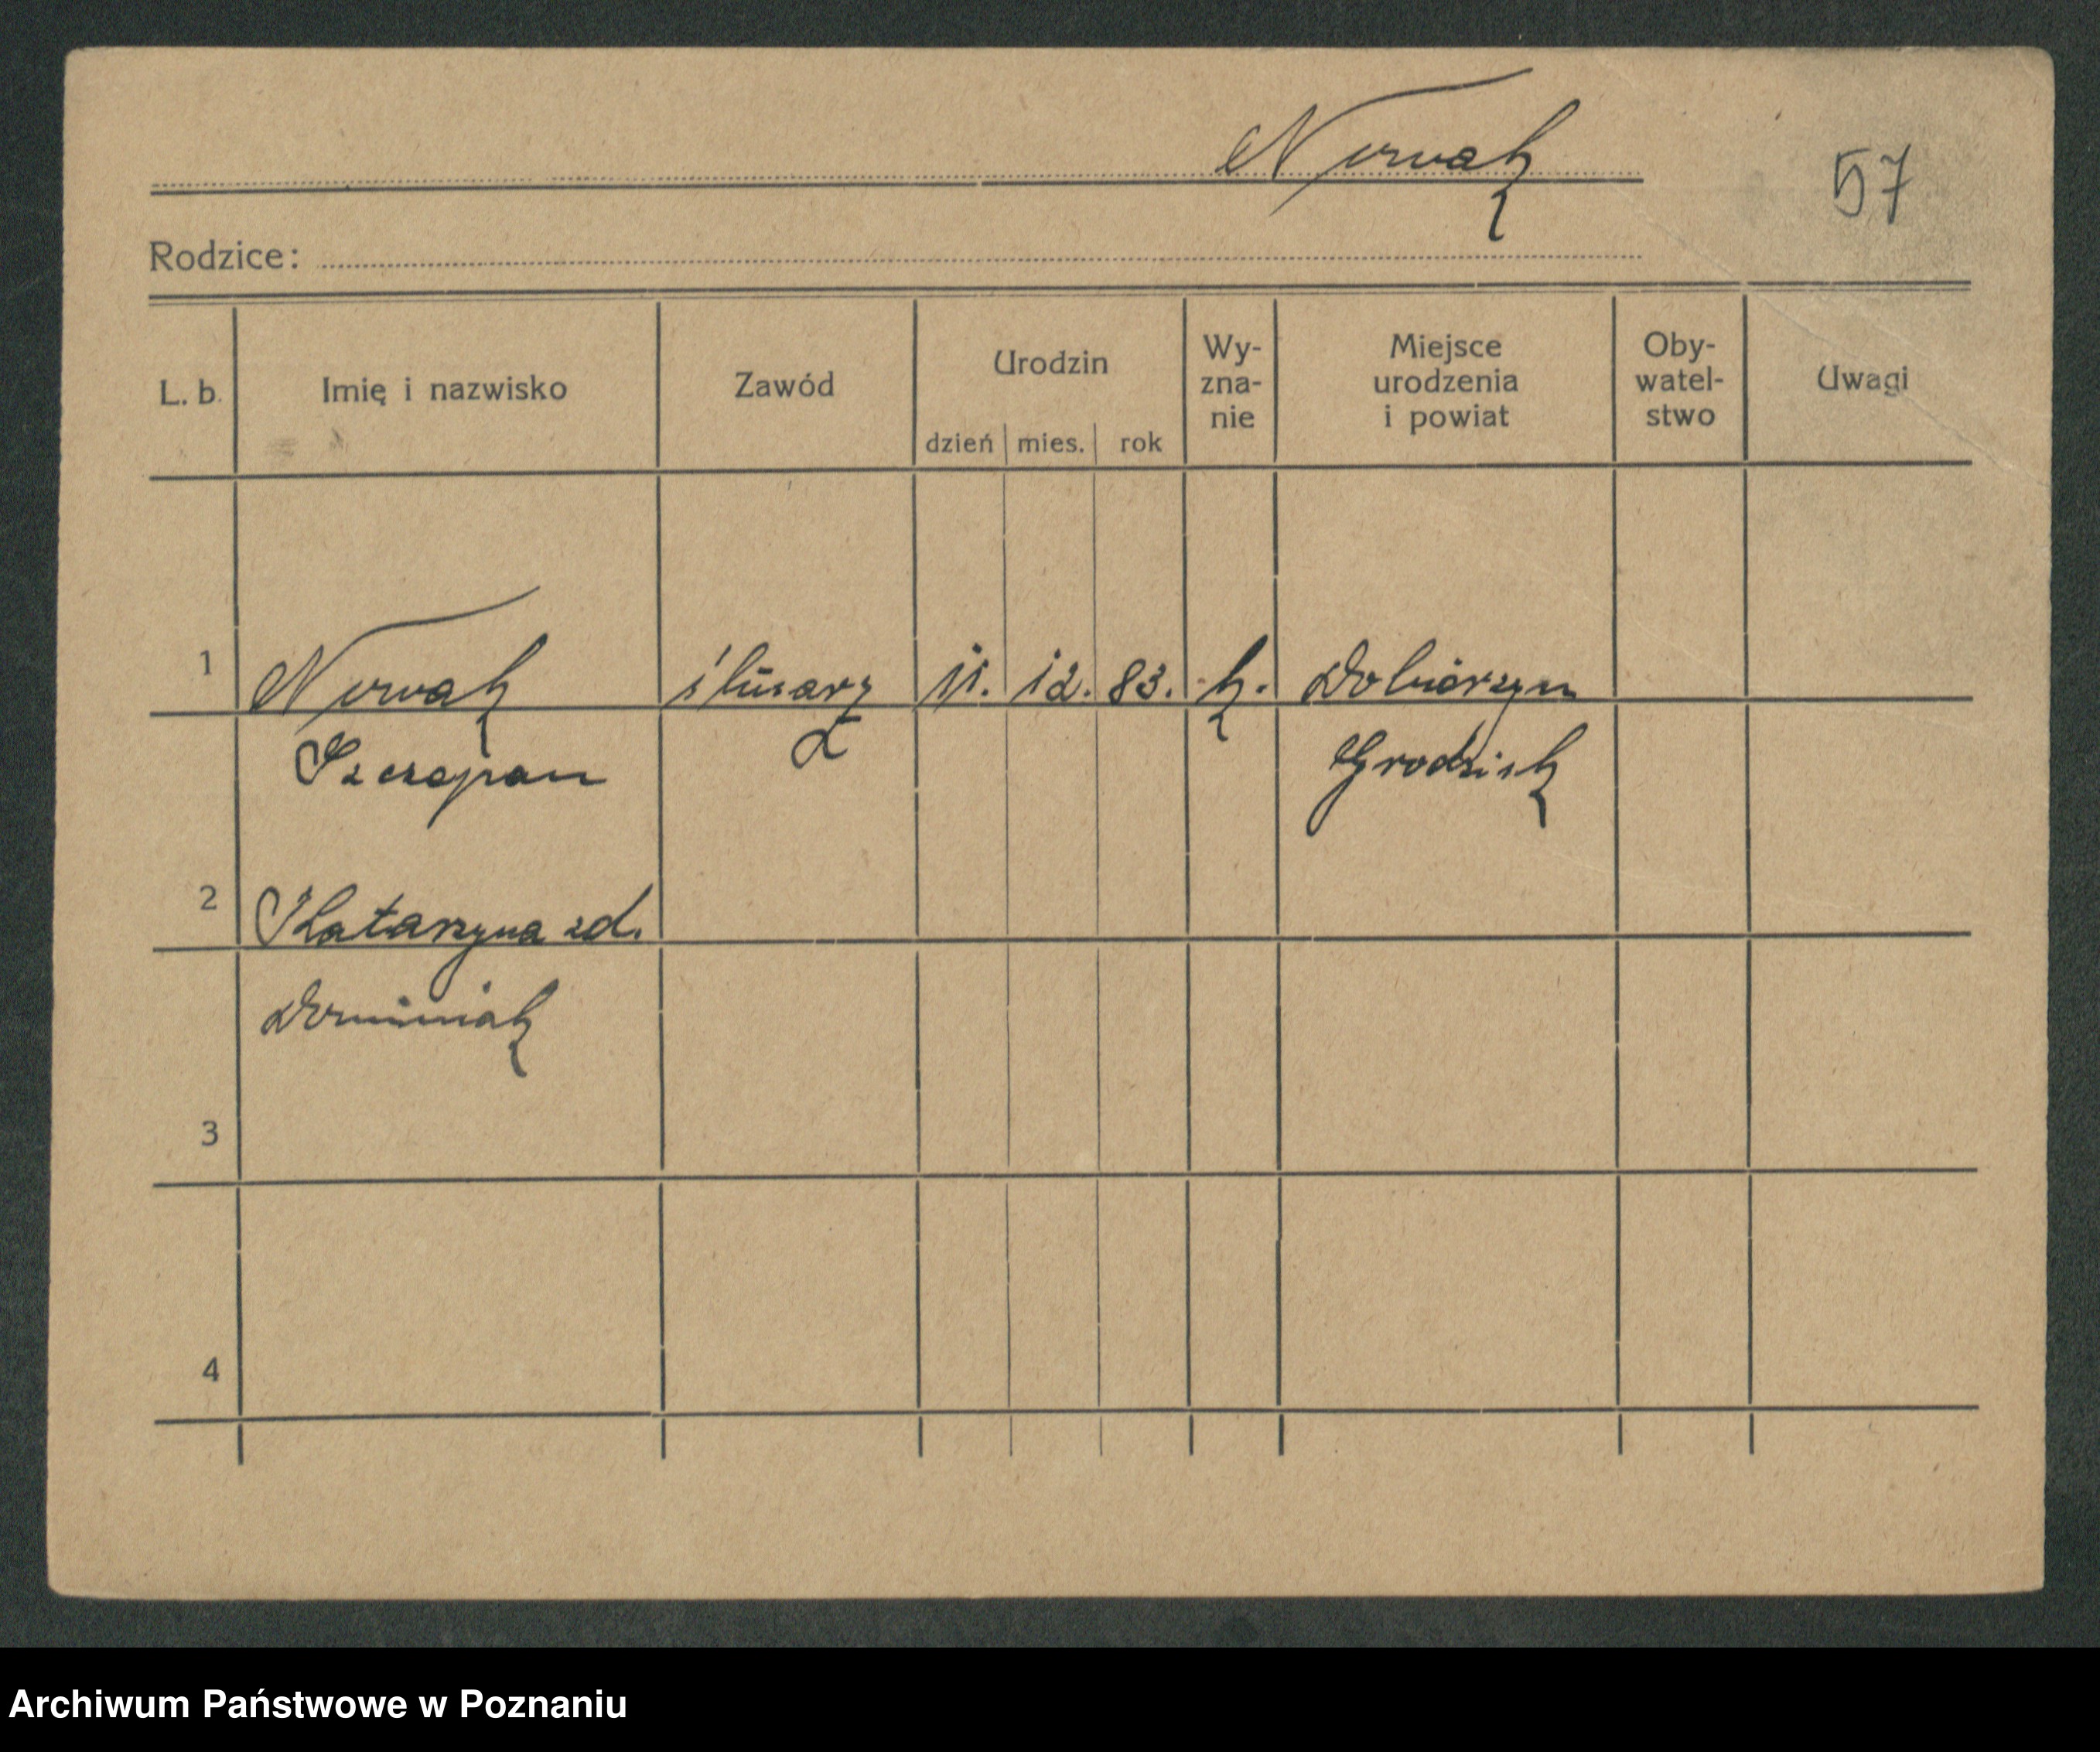 Nowak
57
Rodzice:
L. b. Imię i nazwisko Zawód Urodzin dzień mies. rok Wy-zna-nie Miejsce urodzenia i powiat Oby-watel-stwo Uwagi
1 Nowak ślusarz 11. 12. 83. k.
Szczepan Grodzisk
2 Katarzyna zd.
Dominiak
3
4
Archiwum Państwowe w Poznaniu